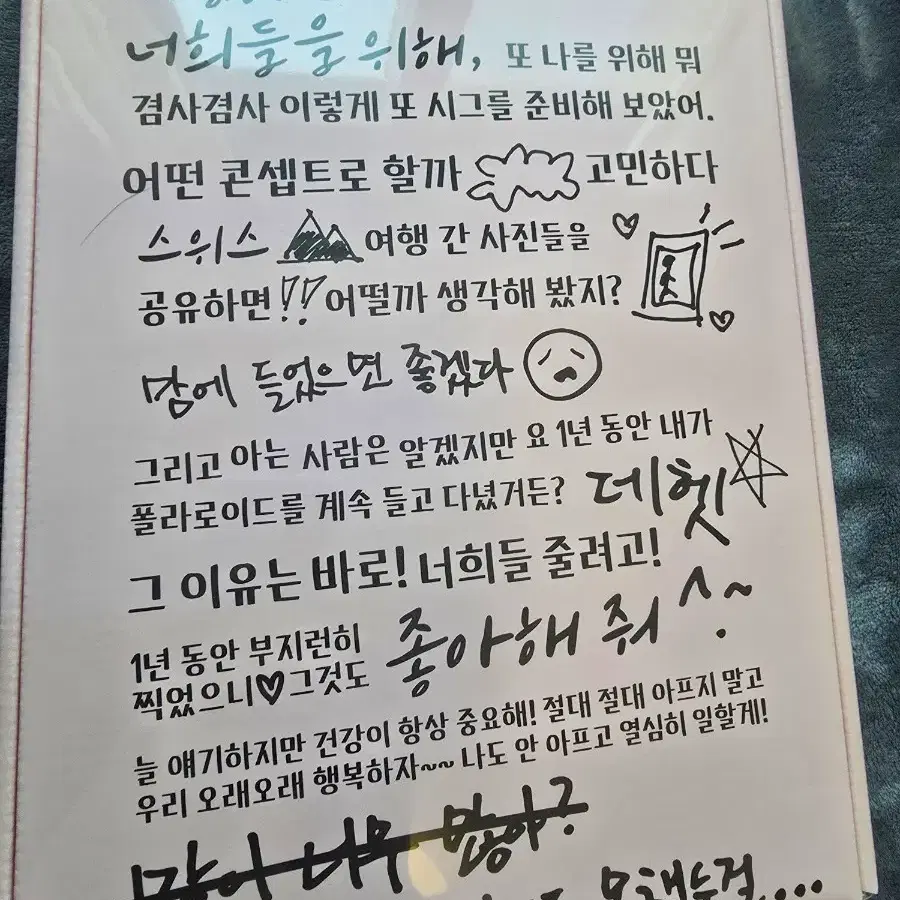 너희들을 위해, 또 나를 위해 뭐
겸사겸사 이렇게 또 시그를 준비해 보았어.
어떤 콘셉트로 할까 고민하다
스위스 여행 간 사진들을
공유하면!! 어떨까 생각해 봤지?
맘에 들었으면 좋겠다
그리고 아는 사람은 알겠지만 요 1년 동안 내가
폴라로이드를 계속 들고 다녔거든? 데헷
그 이유는 바로! 너희들 줄려고!
1년 동안 부지런히
찍었으니♥그것도 좋아해 줘 ^.~
늘 얘기하지만 건강이 항상 중요해! 절대 절대 아프지 말고
우리 오래오래 행복하자~~ 나도 안 아프고 열심히 일할게!
너무